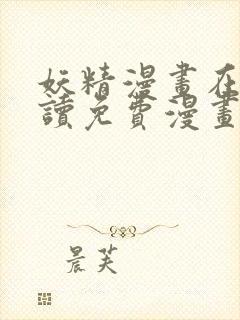 妖精漫畫在
讀免費漫畫
晨芙